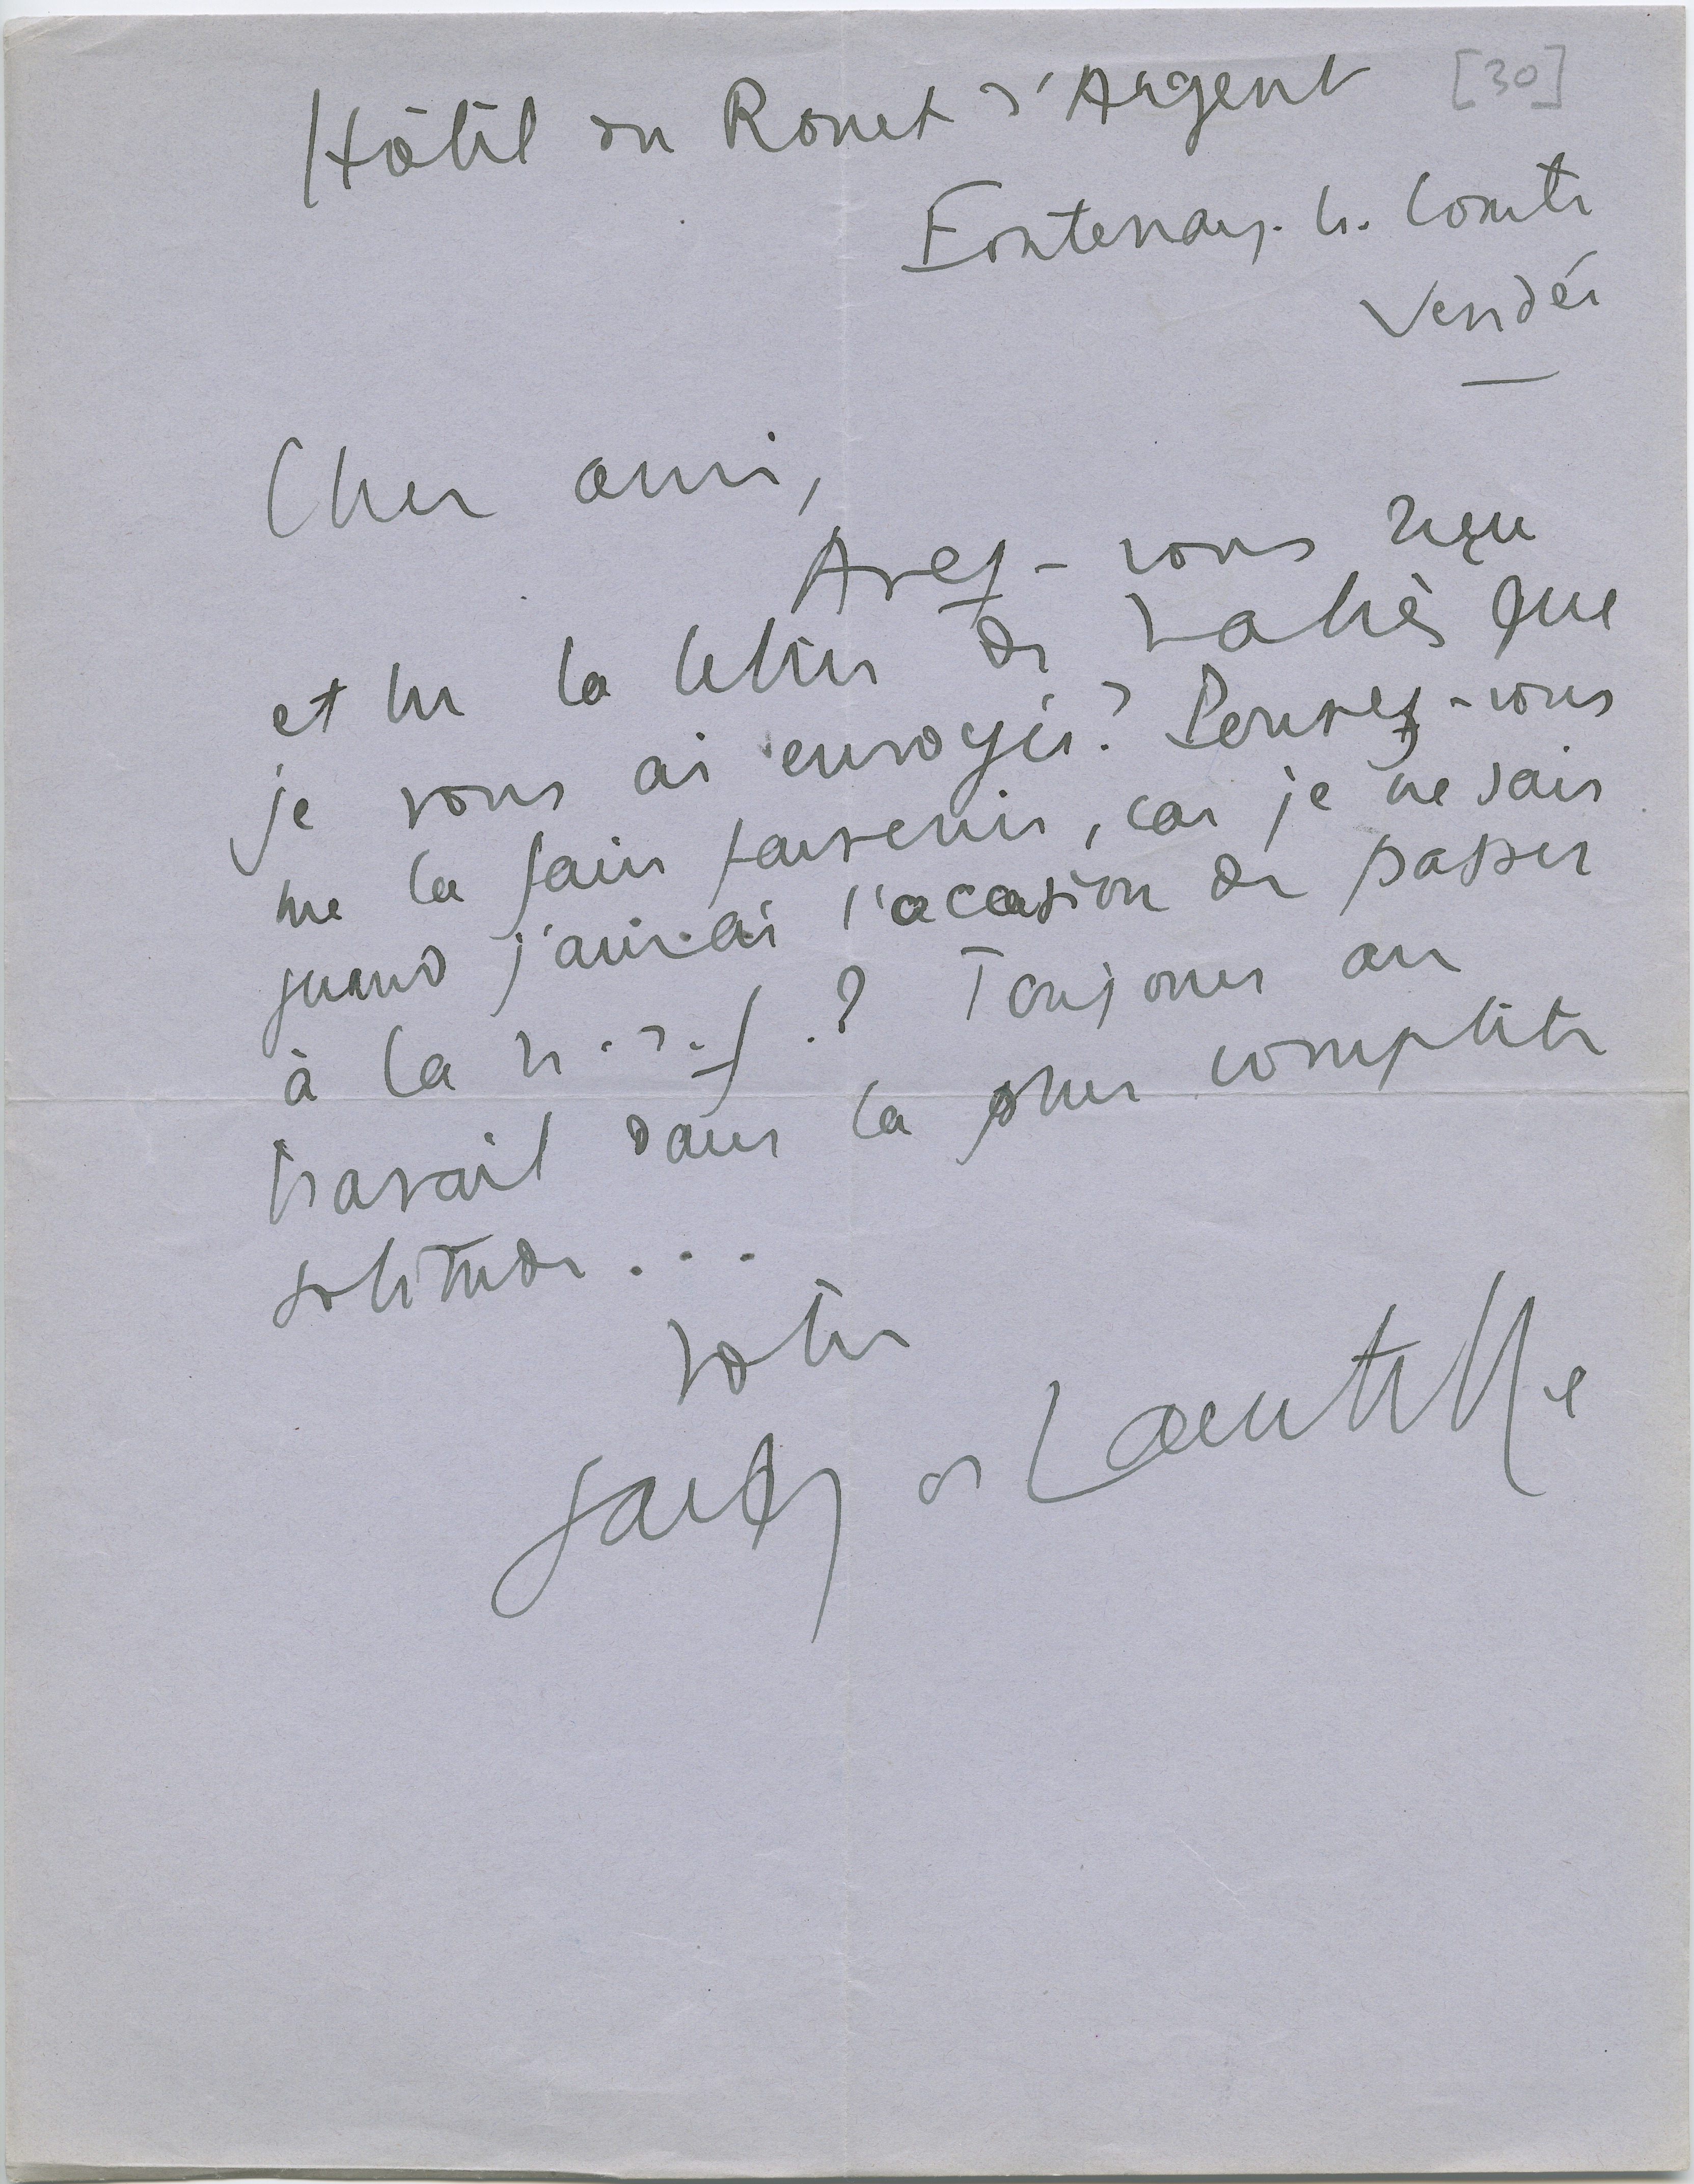 [30]
Hôtel du Rouet d'Argent
Fontenay-le-Comte
Vendée
Cher ami,
Avez-vous reçu
et lu la lettre de que
je vous ai envoyée? Pouvez-vous
me la faire parvenir, car je ne sais
quand j'aurai l'occasion de passer
à la n.r.f.? Toujours au
travail dans la plus complète
solitude...
Votre
Jacques de Lacretelle